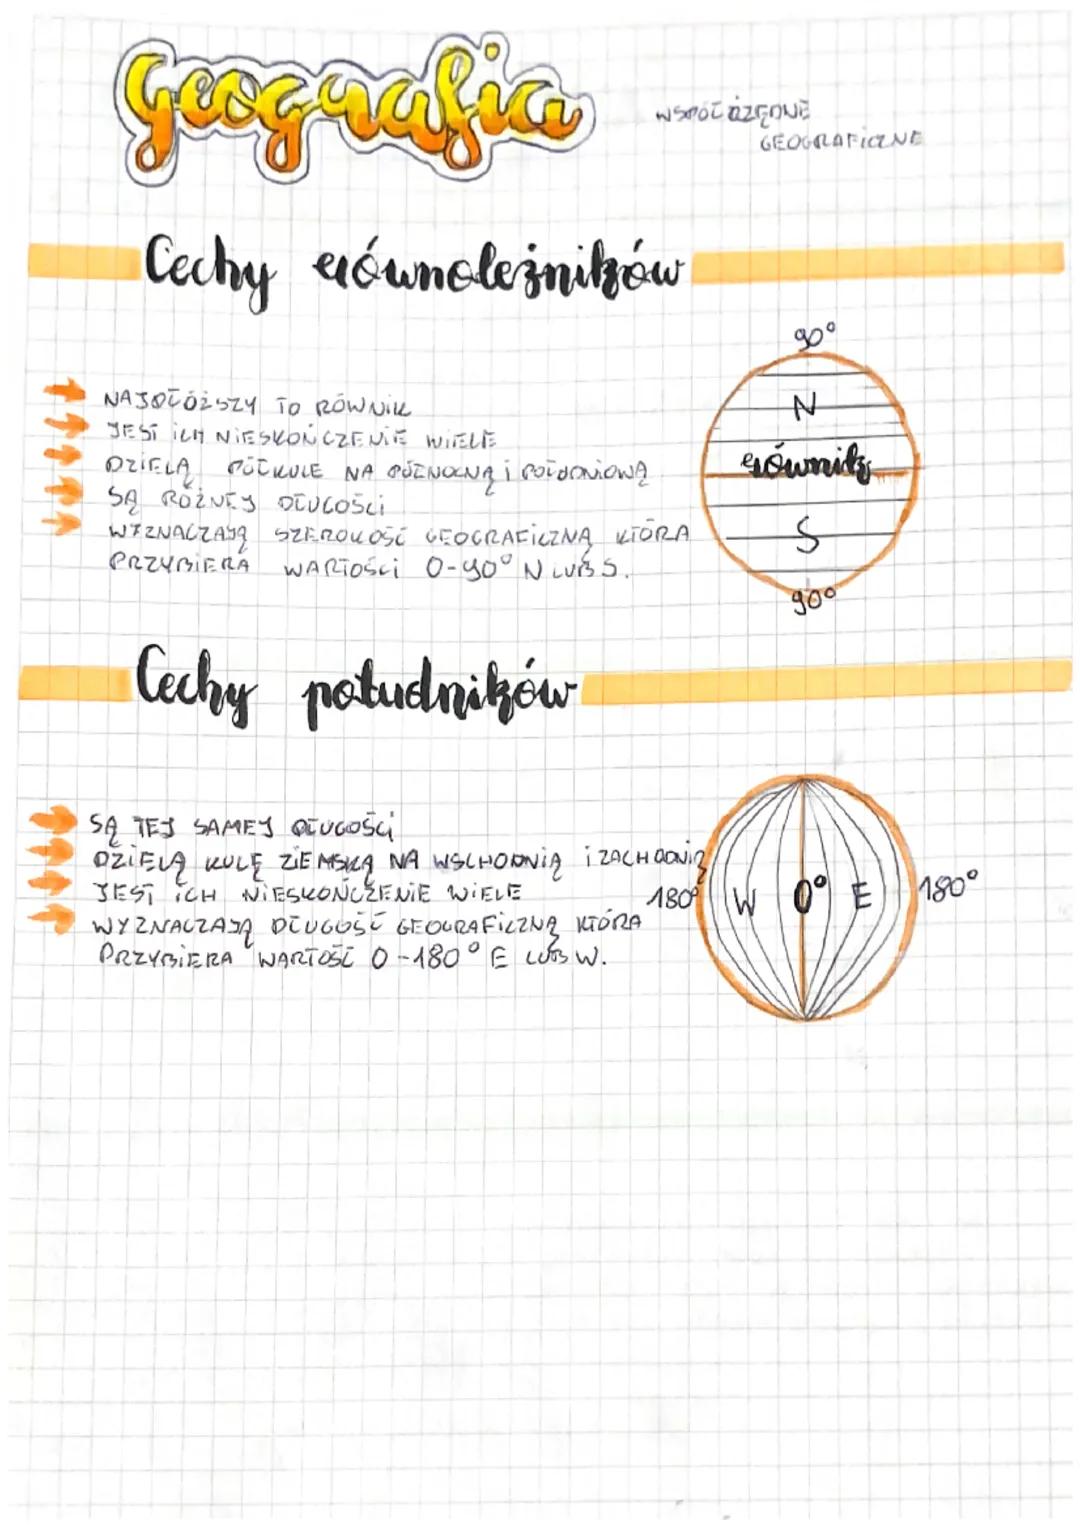 Geografia
WSPÓŁRZĘDNE
GEOGRAFICZNE
Cechy równoleżników
90°
NAJDŁUŻSZY TO RÓWNIK
JEST ICH NIESKOŃCZENIE WIELE
DZIELĄ PÓŁKULE NA PÓŁNOCNĄ i POŁUDNIOWĄ
SĄ RÓŻNEJ DŁUGOŚCI
WYZNACZAJĄ SZEROKOŚĆ GEOGRAFICZNĄ KTÓRA
PRZYBIERA WARTOŚCI 0-90° N LUB S.
N
równik
S
90°
Cechy południków
SĄ TEJ SAMEJ DŁUGOŚCI
DZIELĄ KULĘ ZIEMSKĄ NA WSCHODNIĄ i ZACHODNIĄ
JEST ICH NIESKOŃCZENIE WIELE
WYZNACZAJĄ DŁUGOŚĆ GEOGRAFICZNĄ KTÓRA
PRZYBIERA WARTOŚĆ 0-180° E LUB W.
180° W 0° E 180°